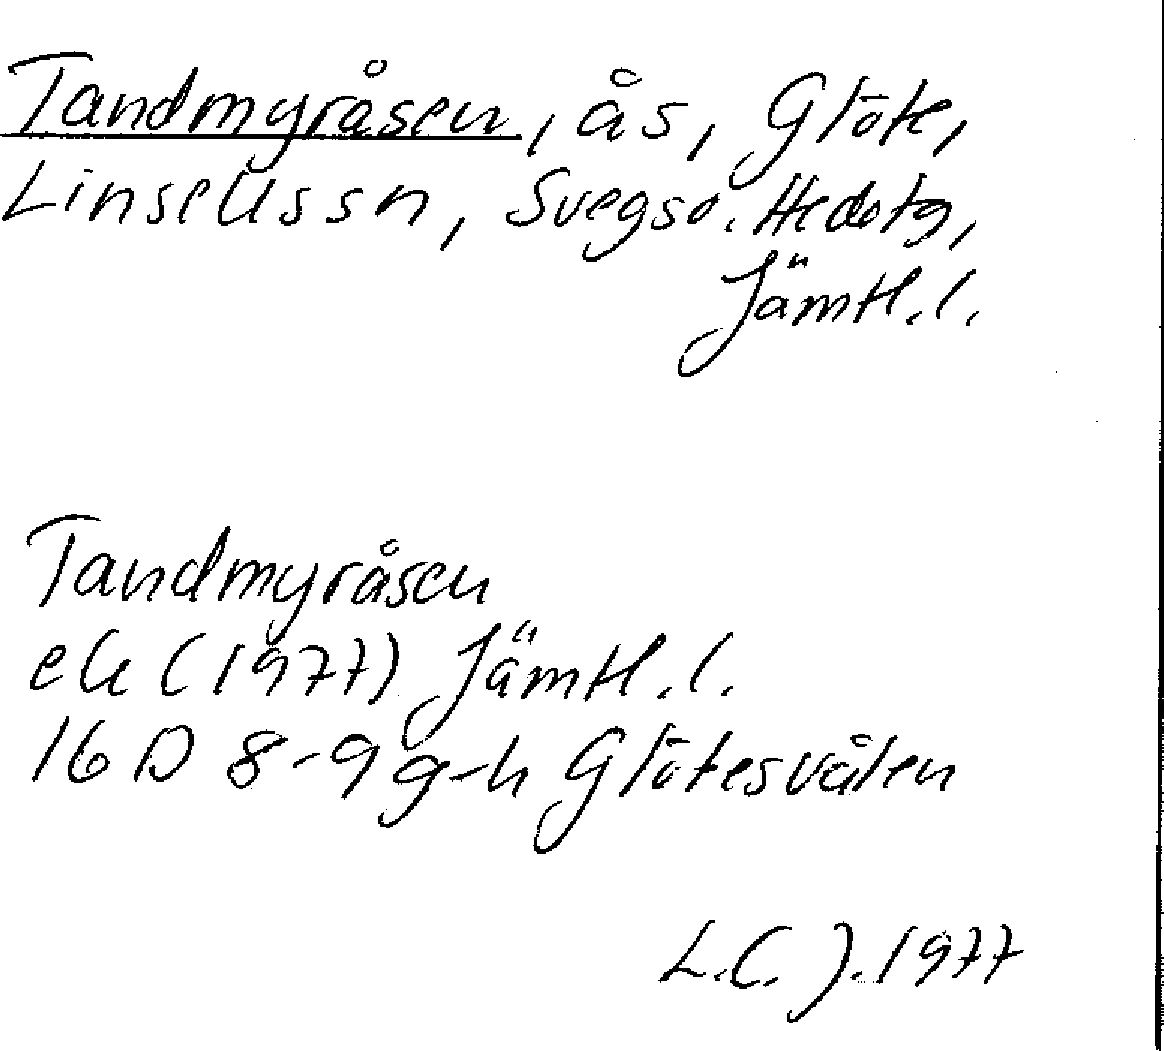 Tandmyråsen, ås, Glöte,
Linsellssn, Svegs o. Hedetg,
Jämtl.l.
Tandmyråsen
ek (1977) Jämtl.l.
16 D 8-9 g-h Glötesvålen
L.C. J. 1977